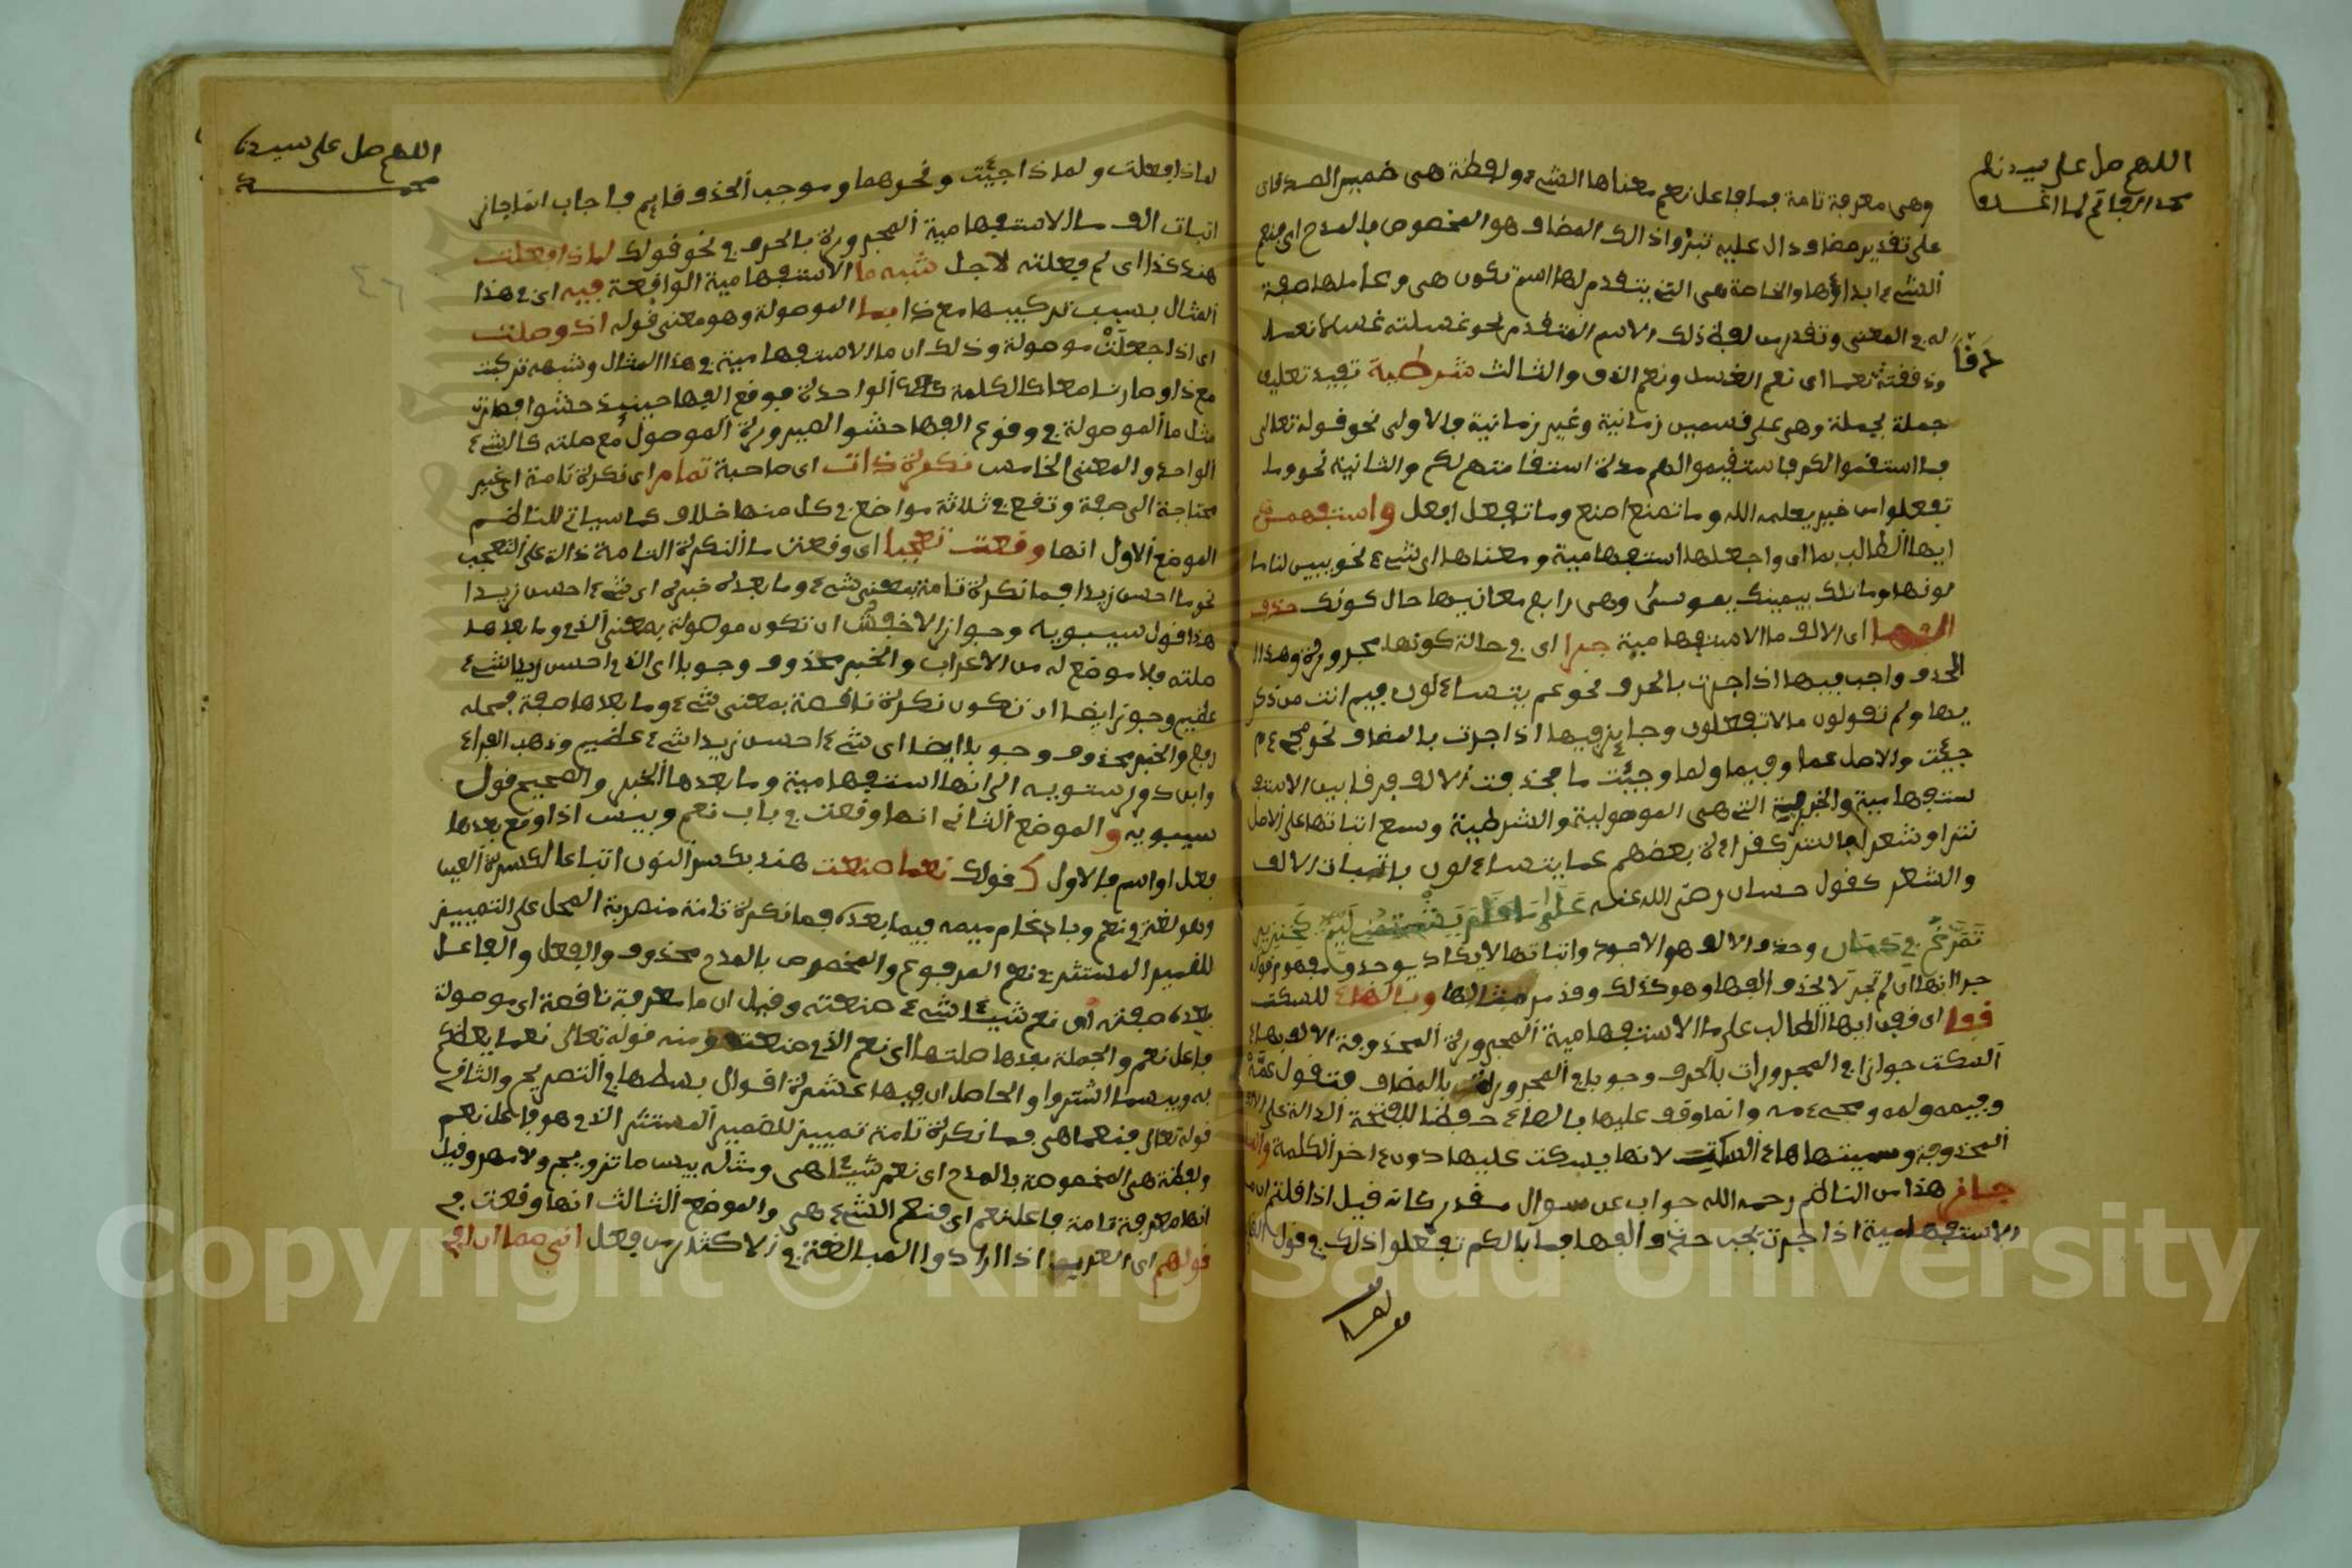 اللهم صل على سيدنا
محمد الفاتح لما اغلق
وهي معرفة تامة فما فاعل نعم معناها الشيء ولفظة هي ضمير الصدقات
على تقدير مضاف دال عليه تبدوا ذالك المضاف هو المخصوص بالمدح اي فنعم
الشيء ابداؤها والخاصة هي التي يتقدم لها اسم تكون هي وعاملها صفة
له في المعنى وتقدر من لفظ ذلك الاسم المتقدم نحو غسلته غسلا نعما
دقا
ودققته نعما اي نعم الغسل ونعم الدق والثالث شرطية تفيد تعليق
جملة بجملة وهي على قسمين زمانية وغير زمانية فالاولى نحو قوله تعالى
فما استقموا لكم فاستقيموا لهم مدة استقامتهم لكم والثانية نحو وما
تفعلوا من خير يعلمه الله وما تصنع اصنع وما تفعل افعل واستفهمن
ايها الطالب بما اي واجعلها استفهامية ومعناها اي شيء نحو يبين لنا ما
لونها وما تلك بيمينك يموسى وهي رابع معانيها حال كونك حذف
الفها اي الالف ما الاستفهامية جرا اي في حالة كونها مجرورة وهذا
الحذف واجب فيها اذا جرت بالحرف نحو عم يتساءلون فيم انت من ذكر
يها ولم تقولون ما لا تفعلون وجايز فيها اذا جرت بالمضاف نحو مجيء م
جيئت والاصل عما وفيما ولما وجيئت ما فحذفت الالف فرقا بين الاستف
ستفهامية والخبرية التي هي الموصولية والشرطية وسمع اثباتها على الاصل
نثرا وشعرا فالنثر كقراءة بعضهم عما يتساءلون باثبات الالف
والشعر كقول حسان رضي الله عنه على ما قام يشتمني ليم كخنزير
تمرغ في دمان وحذف الالف هو الاجود واثباتها لا يكاد يوجد ومفهوم قوله
جرا انها ان لم تجر لا يحذف الفها وهو كذلك وقد مر مثالها وبالهاء للسكت
قفا اي قفن ايها الطالب على ما الاستفهامية المجرورة المحذوفة الالف بهاء
السكت جوازا في المجرورات بالحرف وجوبا في المجرورة بالمضاف فتقول عمه
وفيمه ولمه ومجيء مه وانما وقف عليها بالهاء حفظا للفتحة الدالة على الالف
المحذوفة وسميتها هاء السكت لانها يسكت عليها دون ءاخر الكلمة
جاف هذا من الناظم رحمه الله جواب عن سوال مقدر كانه قيل اذا قلتم ان ما
الاستفهامية اذا جرت يجب حذف الفها فما بالكم تفعلوا ذلك في قول القا
قولها
اللهم صل على سيدنا
محمد
لماذا فعلت ولماذا جيئت ونحوهما وموجب الحذف قايم فاجاب انما جاز
اثبات الف ما الاستفهامية المجرورة بالحرف في نحو قولك لماذا فعلت
هند كذا اي لم فعلته لاجل شبه ما الاستفهامية الواقعة فيه اي في هذا
المثال بسبب تركيبها مع ذا بما الموصولة وهو معنى قوله اذ وصلت
اي اذا جعلت موصولة وذلك ان ما الاستفهامية في هذا المثال وشبهه تركبت
مع ذا وصارتا معا كالكلمة الواحدة فوقع الفها حينيذ حشوا فصارت
مثل ما الموصولة في وقوع الفها حشوا لصيرورة الموصول مع صلته كالشيء
الواحد والمعنى الخامس نكرة ذات اي صاحبة تمام اي نكرة تامة اي غير
محتاجة الى صفة وتقع في ثلاثة مواضع في كل منها خلاف كما سياتي للناظم
الموضع الاول انها وقعت تعجبا اي وقعت ما النكرة التامة دالة على التعجب
نحو ما احسن زيدا فما نكرة تامة بمعنى شيء وما بعده خبره اي شيء احسن زيدا
هذا قول سيبويه وجواز الاخفش ان تكون موصولة بمعنى الذي وما بعدها
صلته فلا موضع له من الاعراب والخبر محذوف وجوبا اي الذي احسن زيدا شيء
عظيم وجوز ايضا ان تكون نكرة ناقصة بمعنى شيء وما بعدها صفة فمحله
رفع والخبر محذوف وجوبا ايضا اي شيء احسن زيدا شيء عظيم وذهب الفراء
وابن درستويه الى انها استفهامية وما بعدها الخبر والصحيح قول
سيبويه والموضع الثاني انها وقعت في باب نعم وبيس اذا وقع بعدها
فعل او اسم فالاول كقولك نعما صنعت هند بكسر النون اتباعا لكسرة العين
وهو لغة في نعم وبادغام ميمه فيما بعده فما نكرة تامة منصوبة المحل على التمييز
للضمير المستتر في نعم المرفوع والمخصوص بالمدح محذوف والفعل والفاعل
بعده صفته اي نعم شيئا شيء صنعته وقيل ان ما معرفة ناقصة اي موصولة
فاعل نعم والجملة بعدها صلتها اي نعم الذي صنعت ومنه قوله تعالى نعما يعظكم
به وبيسما اشتروا والحاصل ان فيها عشرة اقوال بسطها في التصريح والثاني
قوله تعالى فنعما هي فما نكرة تامة تمييز للضمير المستتر الذي هو فاعل نعم
ولفظة هي المخصوصة بالمدح اي نعم شيئا هي ومثله بيس ما تزويج ولا مهر وقيل
انها معرفة تامة فاعلة نعم اي فنعم الشيء هي والموضع الثالث انها وقعت في
قولهم اي العرب اذا ارادوا المبالغة في الاكثار من فعل اني مما ان افعل